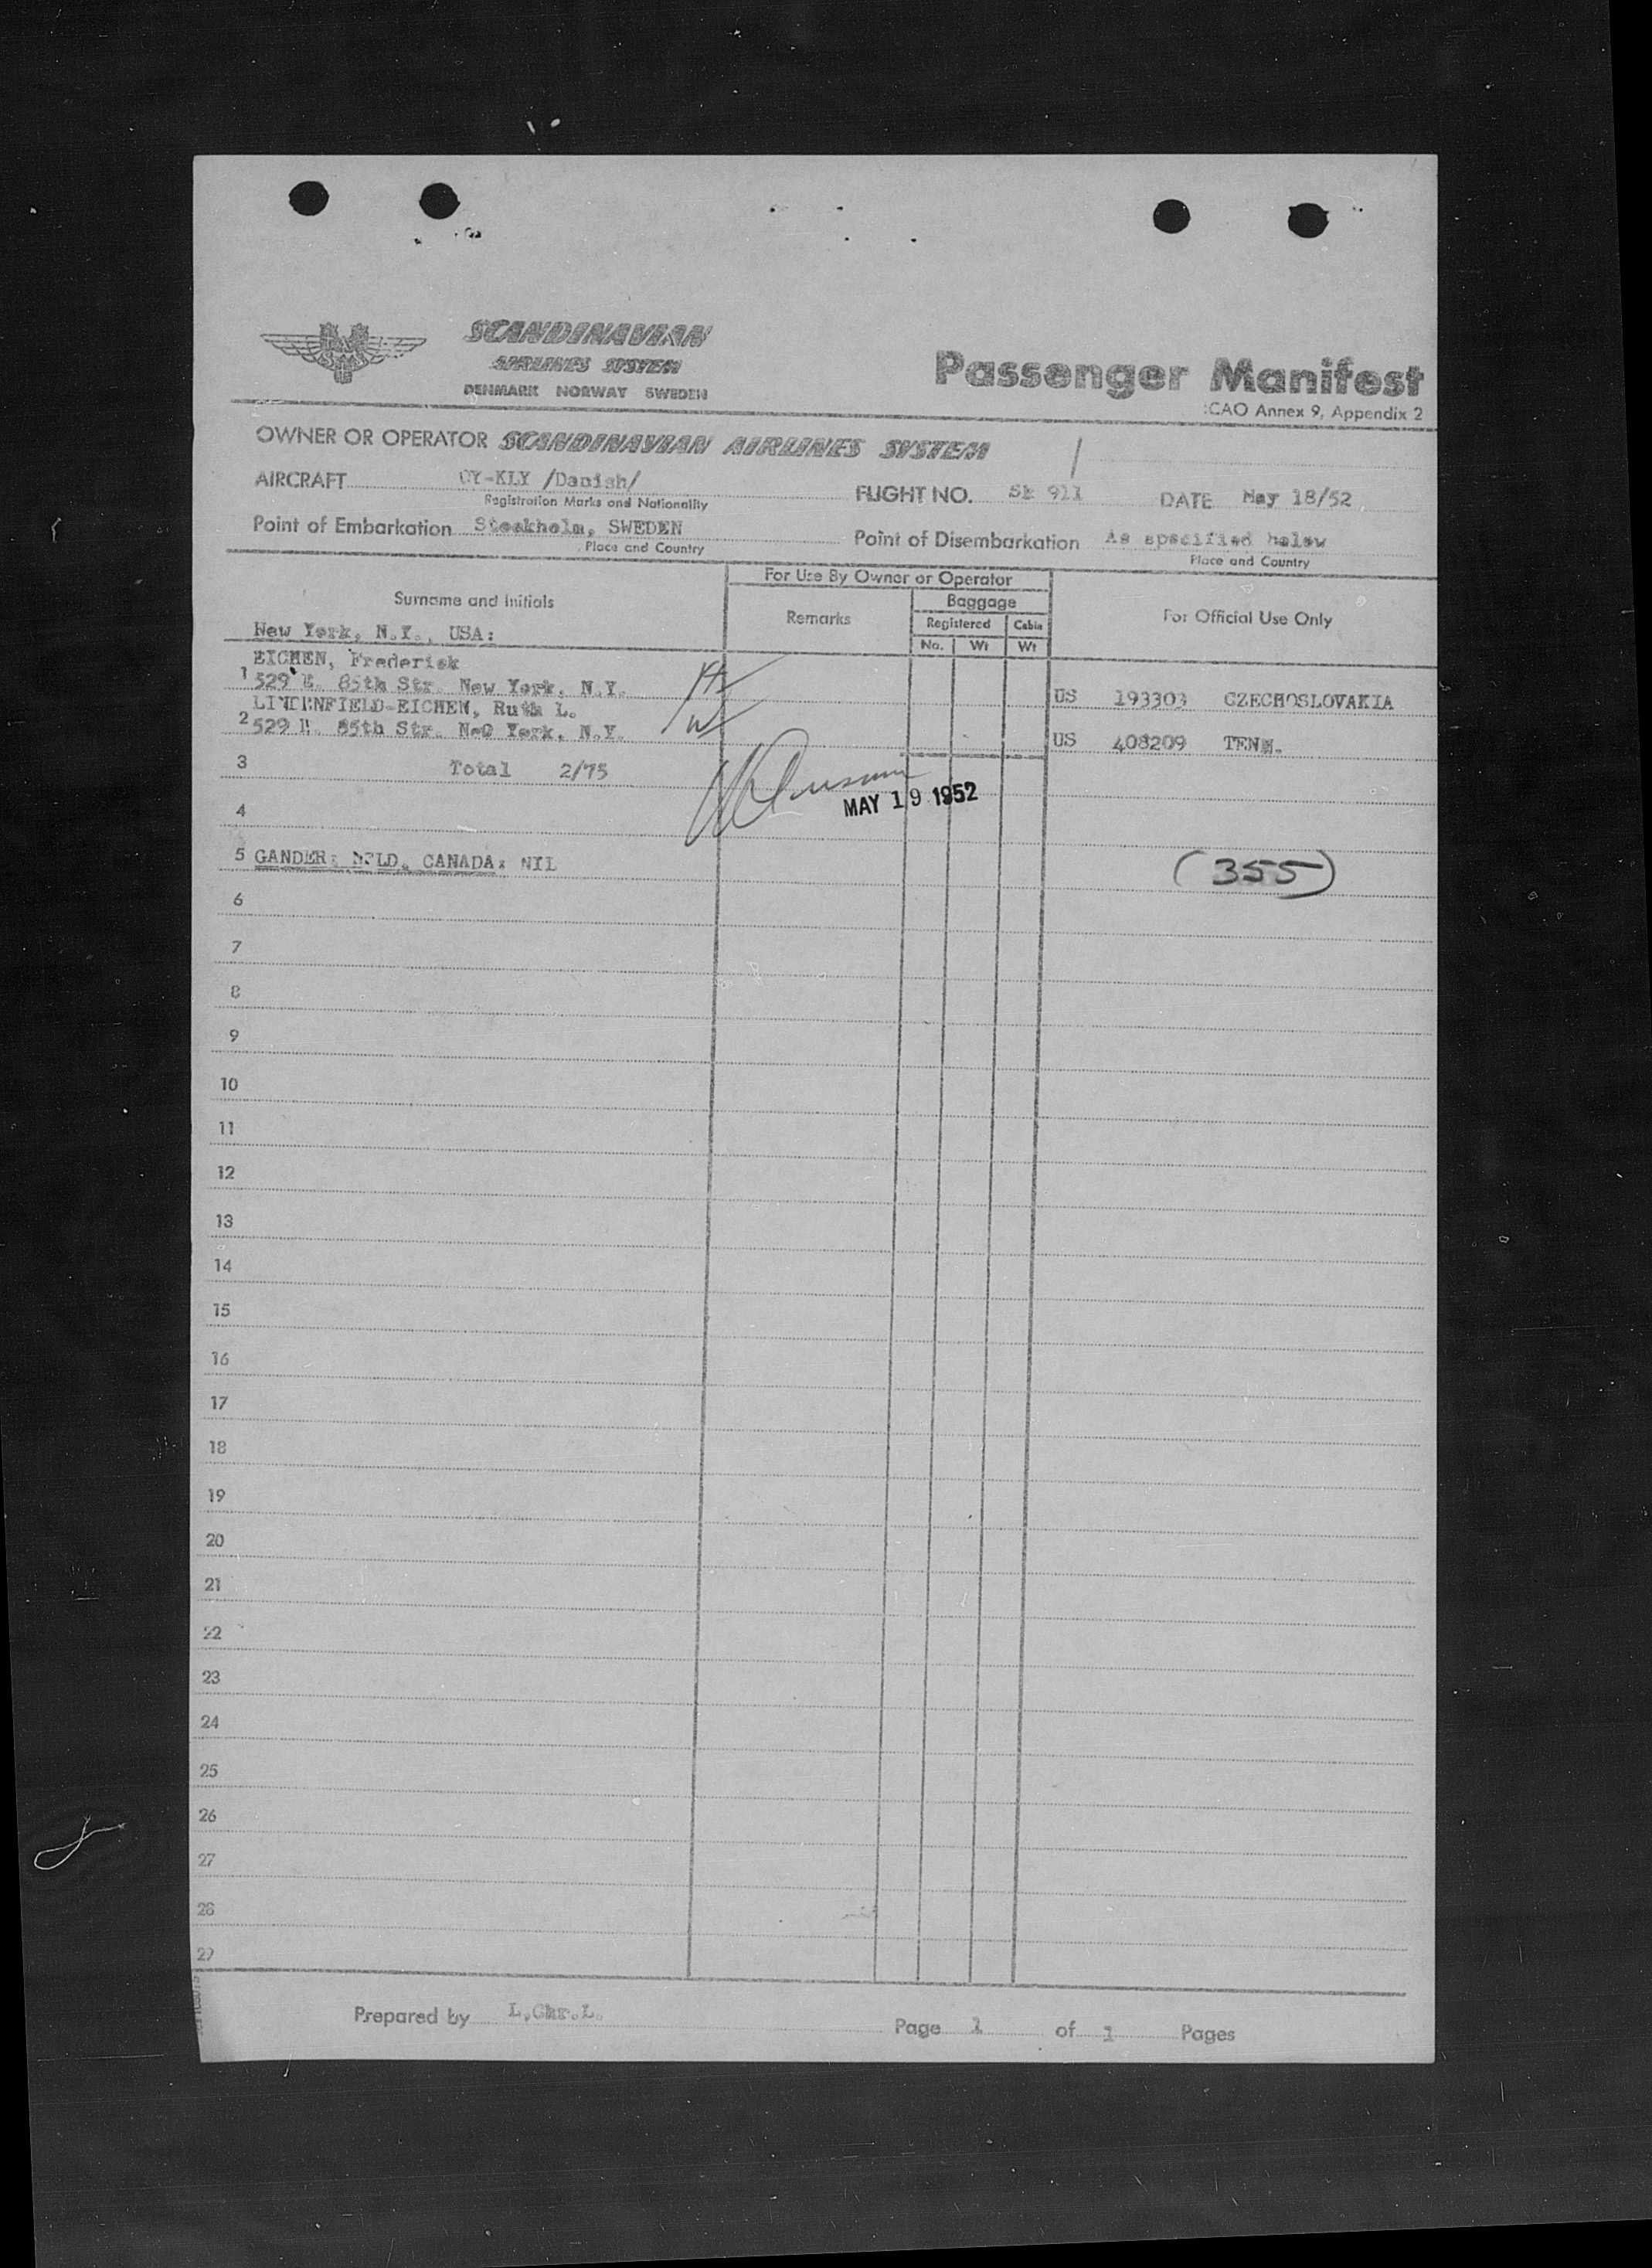 SCANDINAVIAN
AIRLINES SYSTEM
DENMARK NORWAY SWEDEN
Passenger Manifest
ICAO Annex 9, Appendix 2
OWNER OR OPERATOR SCANDINAVIAN AIRLINES SYSTEM
AIRCRAFT OY-KLY /Danish/
Registration Marks and Nationality
FLIGHT NO. SK 911 DATE May 18/52
Point of Embarkation Stockholm, SWEDEN
Place and Country
Point of Disembarkation As specified below
Place and Country
Surname and Initials
For Use By Owner or Operator
Remarks
Baggage
Registered Cabin
No. Wt Wt
For Official Use Only
New York, N.Y., USA:
EICHEN, Frederick
1 529 E. 85th Str. New York, N.Y. US 193303 CZECHOSLOVAKIA
LINDENFIELD-EICHEN, Ruth L.
2 529 E. 85th Str. NeQ York, N.Y. US 408209 TENN.
3 Total 2/75
MAY 19 1952
4
5 GANDER: NFLD, CANADA: NIL (355)
6
7
8
9
10
11
12
13
14
15
16
17
18
19
20
21
22
23
24
25
26
27
28
29
Prepared by L.Chr.L. Page 1 of 1 Pages